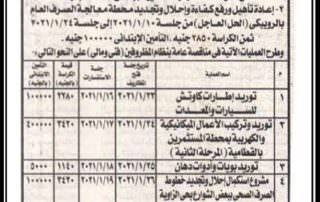 ٢- إعادة تأهيل ورفع كفاءة وإحلال وتجديد محطة معالجة الصرف العام
بالروبيكى (الحل العاجل) من جلسة ٢٠٢١/١/١٠ إلى جلسة ٢٠٢١/١/٢٤
ثمن الكراسة ٢٨٥٠ جنيه التأمين الإبتدائى ١٠٠٠٠٠ جنيه
وطرح العمليات الآتية فى مناقصة عامة بنظام المظروفين (فنى ومالى) على النحو التالى:
م اسم العملية تاريخ جلسة فتح المظاريف جلسة الاستفسارات ثمن الكراسة التأمين الابتدائى
١ توريد إطارات كاوتش للسيارات والمعدات ٢٠٢١/١/٢٣ ٢٠٢١/١/١٦ ٢٢٨٠ ١٠٠٠٠٠
٢ توريد وتركيب الأعمال الميكانيكية والكهربية بمحطة المستثمرين بالقطامية (المرحلة الثانية) ٢٠٢١/١/٢٤ ٢٠٢١/١/١٧ ٣٤٢٠ ٤٠٠٠٠٠
٣ توريد بويات وأدوات دهان ٢٠٢١/١/٢٥ ٢٠٢١/١/١٨ ١١٤٠ ٥٠٠٠
٤ مشروع استكمال إحلال وتجديد خطوط الصرف الصحى ببعض الشوارع بحى الزاوية ٢٠٢١/١/٢٦ ٢٠٢١/١/١٩ ٣٤٢٠ ١٠٠٠٠٠